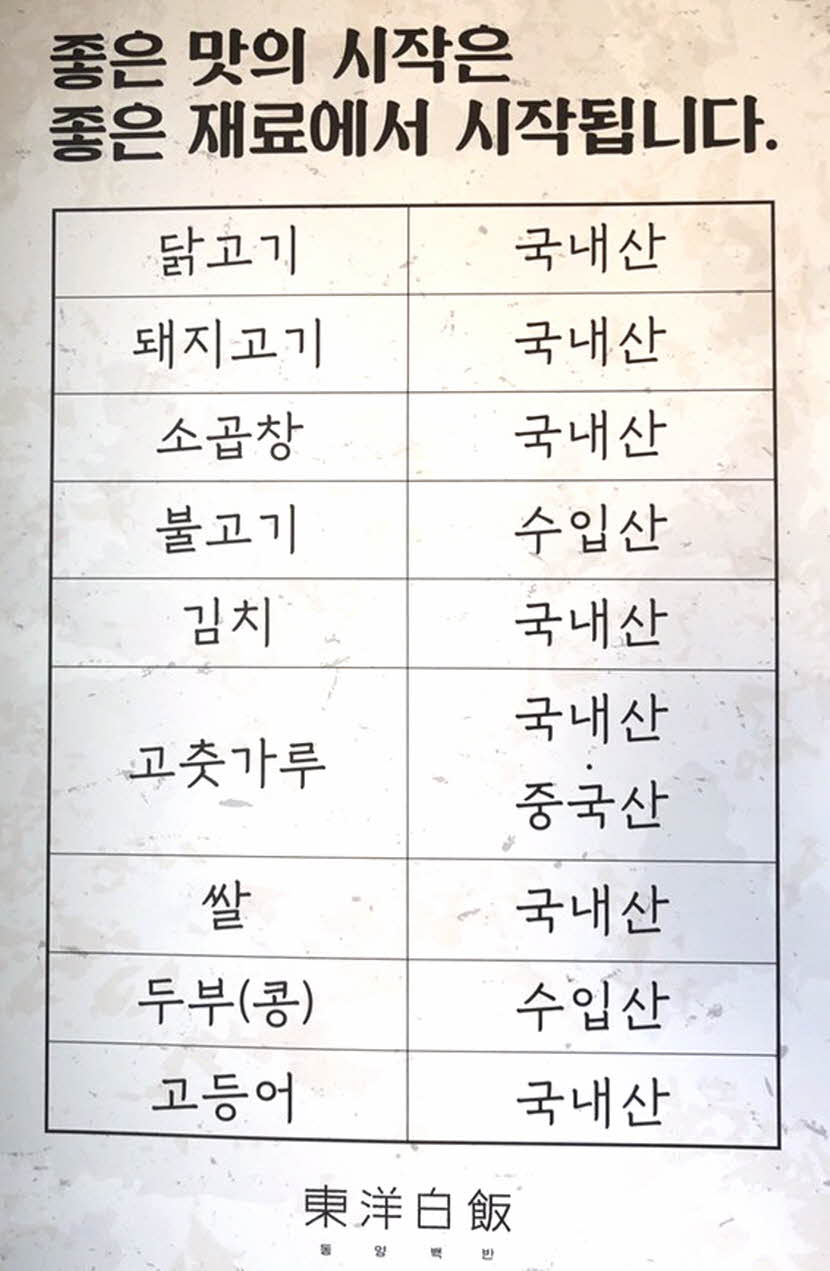 좋은 맛의 시작은
좋은 재료에서 시작됩니다.
닭고기 국내산
돼지고기 국내산
소곱창 국내산
불고기 수입산
김치 국내산
고춧가루 국내산
·
중국산
쌀 국내산
두부(콩) 수입산
고등어 국내산
東洋白飯
동양백반